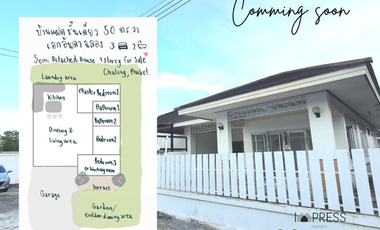 Comming soon
บ้านแฝดชั้นเดียว 50 ตร.วา
เอกอันดา ฉลอง 3 2
Semi Detached House 1 storey For Sale
Chalong, Phuket.
Laundry area
Kitchen
Master Bedroom1
Bathroom1
Bathroom2
Dining &
Living area
Bedroom2
Bedroom3
or Working room
Garage
Terrace
Garden/
Outdoor dining area
PRESS